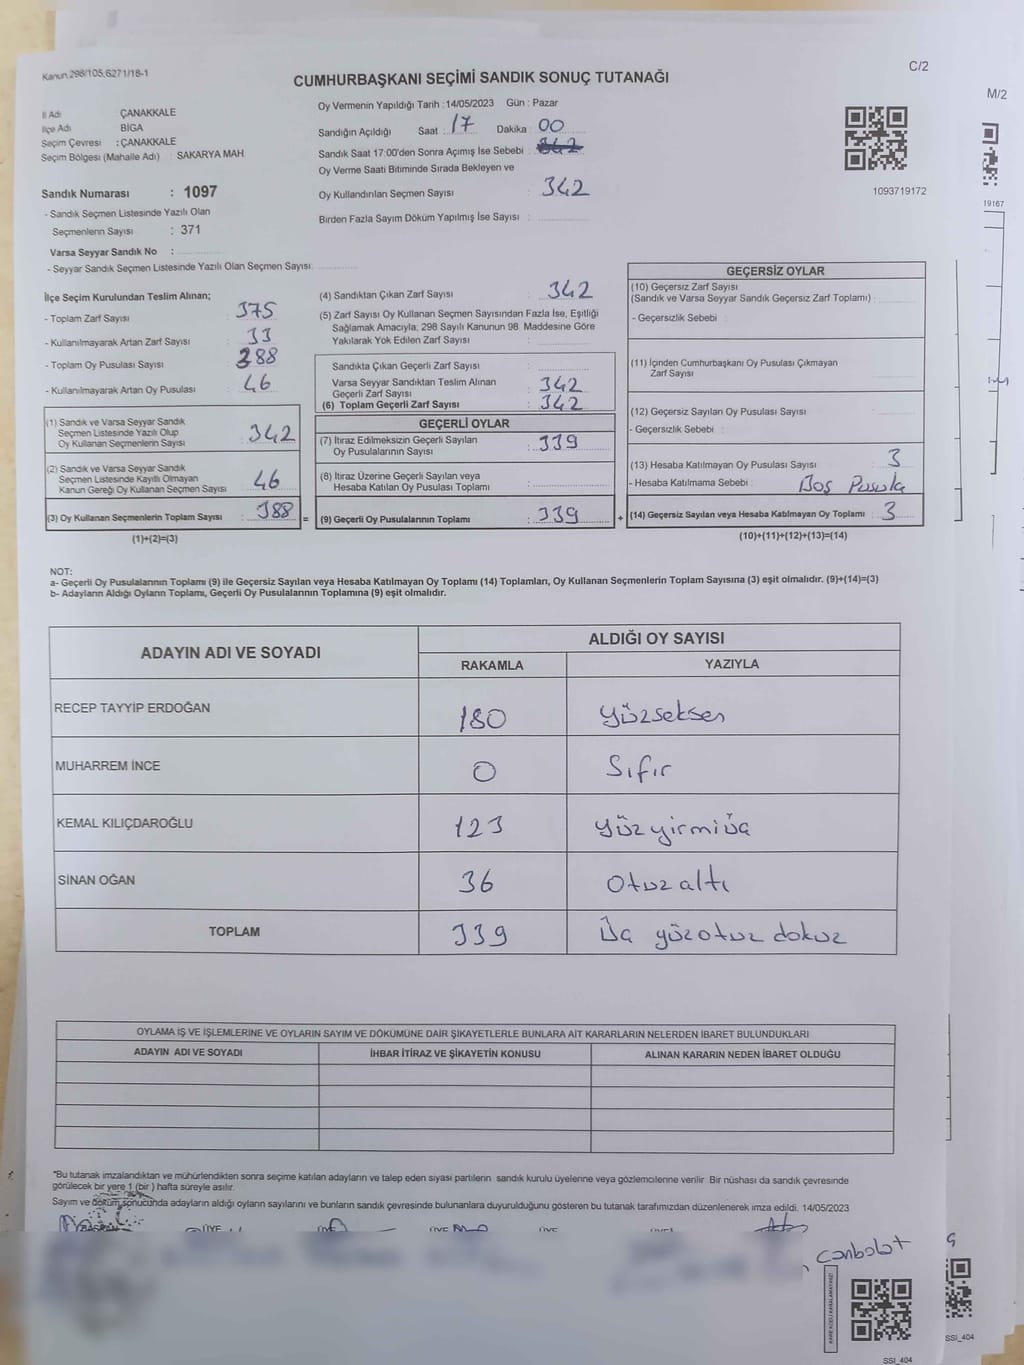 Kanun.298/105,6271/18-1
C/2
CUMHURBAŞKANI SEÇİMİ SANDIK SONUÇ TUTANAĞI
M/2
İl Adı ÇANAKKALE
İlçe Adı BİGA
Seçim Çevresi : ÇANAKKALE
Seçim Bölgesi (Mahalle Adı) : SAKARYA MAH
Oy Vermenin Yapıldığı Tarih : 14/05/2023 Gün : Pazar
Sandığın Açıldığı Saat : 17 Dakika 00
Sandık Saat 17:00'den Sonra Açımış İse Sebebi : 342
Oy Verme Saati Bitiminde Sırada Bekleyen ve
Oy Kullandırılan Seçmen Sayısı : 342
Birden Fazla Sayım Döküm Yapılmış İse Sayısı :
1093719172
19167
Sandık Numarası : 1097
- Sandık Seçmen Listesinde Yazılı Olan
Seçmenlerin Sayısı : 371
Varsa Seyyar Sandık No :
- Seyyar Sandık Seçmen Listesinde Yazılı Olan Seçmen Sayısı:
İlçe Seçim Kurulundan Teslim Alınan;
- Toplam Zarf Sayısı : 375
- Kullanılmayarak Artan Zarf Sayısı : 33
- Toplam Oy Pusulası Sayısı : 388
- Kullanılmayarak Artan Oy Pusulası : 46
(1) Sandık ve Varsa Seyyar Sandık
Seçmen Listesinde Yazılı Olup
Oy Kullanan Seçmenlerin Sayısı : 342
(2) Sandık ve Varsa Seyyar Sandık
Seçmen Listesinde Kayıtlı Olmayan
Kanun Gereği Oy Kullanan Seçmen Sayısı : 46
(3) Oy Kullanan Seçmenlerin Toplam Sayısı : 388 =
(1)+(2)=(3)
(4) Sandıktan Çıkan Zarf Sayısı : 342
(5) Zarf Sayısı Oy Kullanan Seçmen Sayısından Fazla İse, Eşitliği
Sağlamak Amacıyla, 298 Sayılı Kanunun 98. Maddesine Göre
Yakılarak Yok Edilen Zarf Sayısı :
Sandıkta Çıkan Geçerli Zarf Sayısı :
Varsa Seyyar Sandıktan Teslim Alınan
Geçerli Zarf Sayısı : 342
(6) Toplam Geçerli Zarf Sayısı : 342
GEÇERLİ OYLAR
(7) İtiraz Edilmeksizin Geçerli Sayılan
Oy Pusulalarının Sayısı : 339
(8) İtiraz Üzerine Geçerli Sayılan veya
Hesaba Katılan Oy Pusulası Toplamı :
(9) Geçerli Oy Pusulalarının Toplamı : 339 +
GEÇERSİZ OYLAR
(10) Geçersiz Zarf Sayısı
(Sandık ve Varsa Seyyar Sandık Geçersiz Zarf Toplamı) :
- Geçersizlik Sebebi :
(11) İçinden Cumhurbaşkanı Oy Pusulası Çıkmayan
Zarf Sayısı :
(12) Geçersiz Sayılan Oy Pusulası Sayısı :
- Geçersizlik Sebebi :
(13) Hesaba Katılmayan Oy Pusulası Sayısı : 3
- Hesaba Katılmama Sebebi : Boş Pusula
(14) Geçersiz Sayılan veya Hesaba Katılmayan Oy Toplamı : 3
(10)+(11)+(12)+(13)=(14)
NOT:
a- Geçerli Oy Pusulalarının Toplamı (9) ile Geçersiz Sayılan veya Hesaba Katılmayan Oy Toplamı (14) Toplamları, Oy Kullanan Seçmenlerin Toplam Sayısına (3) eşit olmalıdır. (9)+(14)=(3)
b- Adayların Aldığı Oyların Toplamı, Geçerli Oy Pusulalarının Toplamına (9) eşit olmalıdır.
ADAYIN ADI VE SOYADI ALDIĞI OY SAYISI
RAKAMLA YAZIYLA
RECEP TAYYİP ERDOĞAN 180 Yüzseksen
MUHARREM İNCE 0 Sıfır
KEMAL KILIÇDAROĞLU 123 Yüzyirmiüç
SİNAN OĞAN 36 Otuzaltı
TOPLAM 339 Üç yüzotuz dokuz
OYLAMA İŞ VE İŞLEMLERİNE VE OYLARIN SAYIM VE DÖKÜMÜNE DAİR ŞİKAYETLERLE BUNLARA AİT KARARLARIN NELERDEN İBARET BULUNDUKLARI
ADAYIN ADI VE SOYADI İHBAR İTİRAZ VE ŞİKAYETİN KONUSU ALINAN KARARIN NEDEN İBARET OLDUĞU
"Bu tutanak imzalandıktan ve mühürlendikten sonra seçime katılan adayların ve talep eden siyasi partilerin sandık kurulu üyelerine veya gözlemcilerine verilir. Bir nüshası da sandık çevresinde
görülecek bir yere 1 (bir) hafta süreyle asılır.
Sayım ve döküm sonucunda adayların aldığı oyların sayılarını ve bunların sandık çevresinde bulunanlara duyurulduğunu gösteren bu tutanak tarafımızdan düzenlenerek imza edildi. 14/05/2023
BAŞKAN ÜYE ÜYE ÜYE ÜYE ÜYE
canbolat
KARE KODU KARALAMAYINIZ!
SSI_404
SSI_404